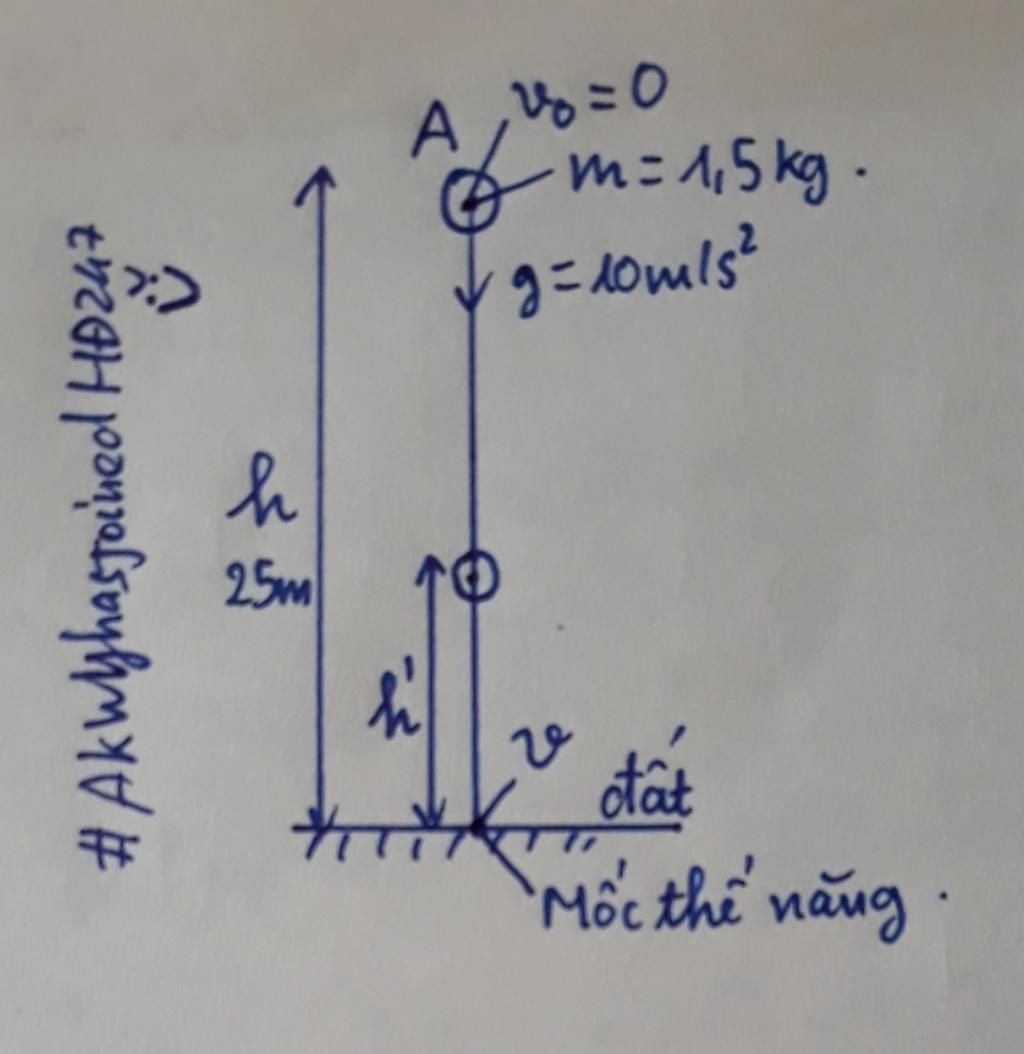 A
v₀ = 0
m = 1,5 kg .
g = 10m/s²
h
25m
h'
v
đất
Mốc thế năng .
# AkWyhasjoined HĐ247